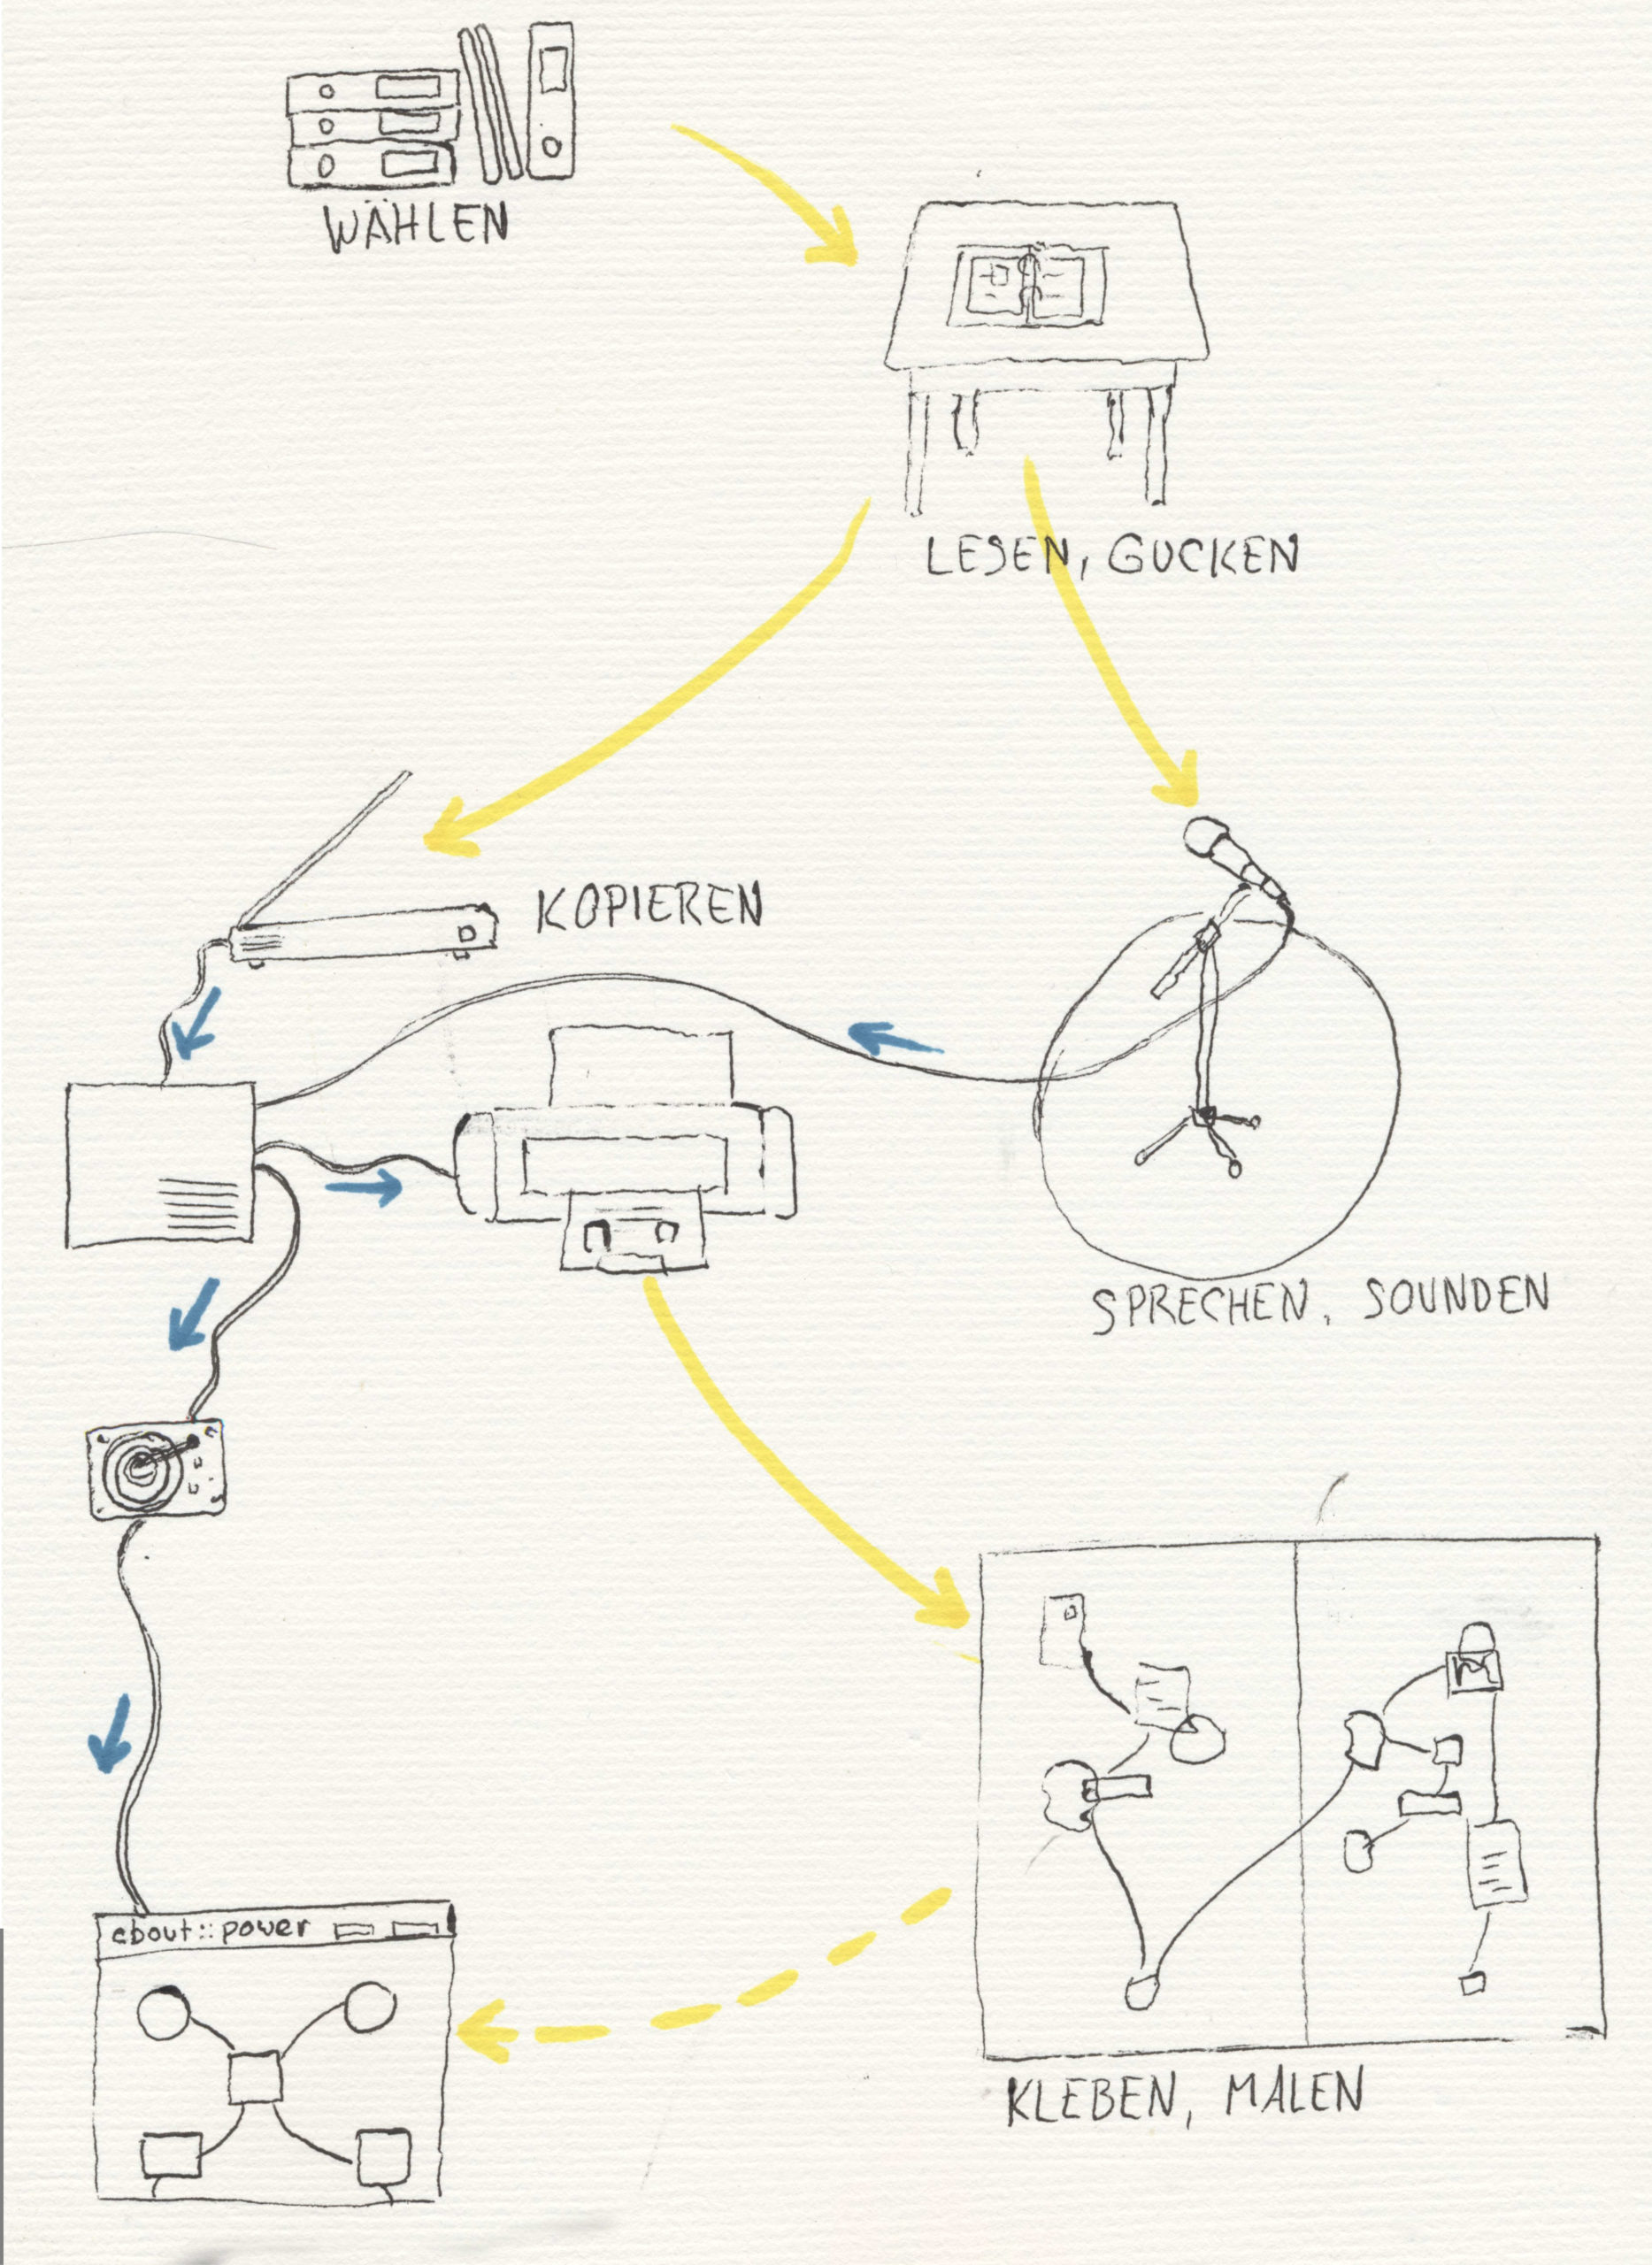 WÄHLEN
LESEN, GUCKEN
KOPIEREN
SPRECHEN, SOUNDEN
about::power
KLEBEN, MALEN